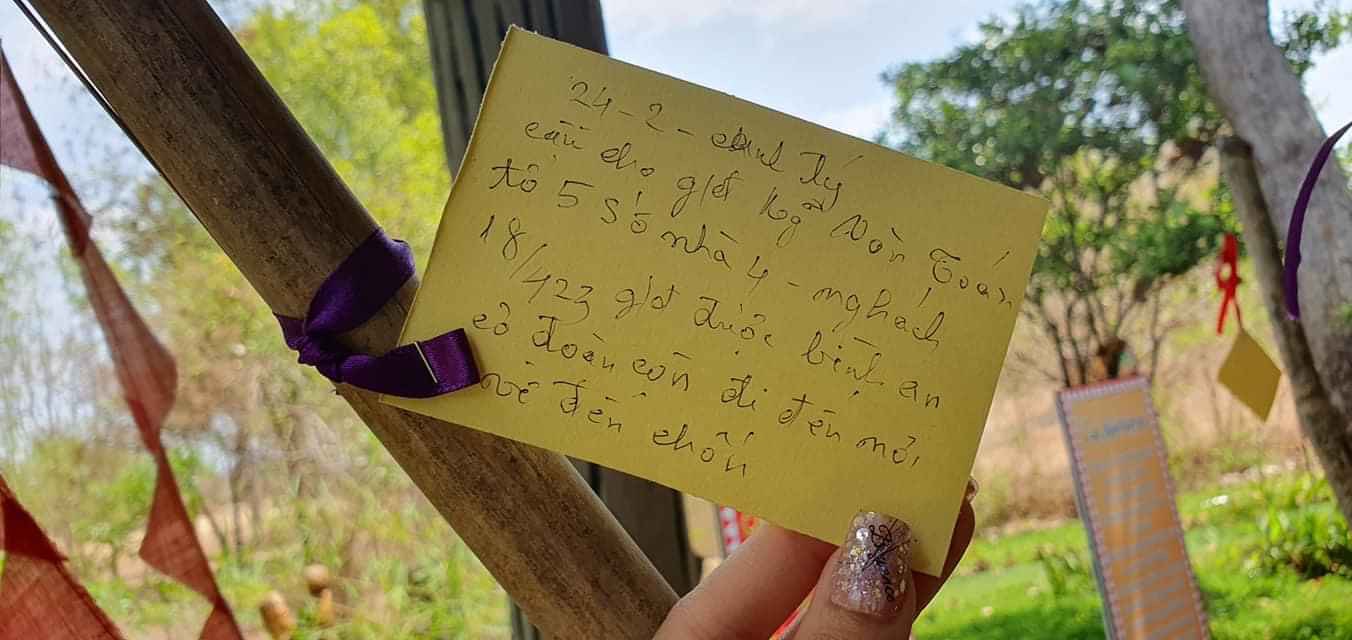 24-2-canh Tý
cầu cho g/đ Ngô Xuân Toán
tổ 5 số nhà 4 - nghách
18/423 g/đ được bình an
cô đoàn côn đi đến nơi
về đến chốn